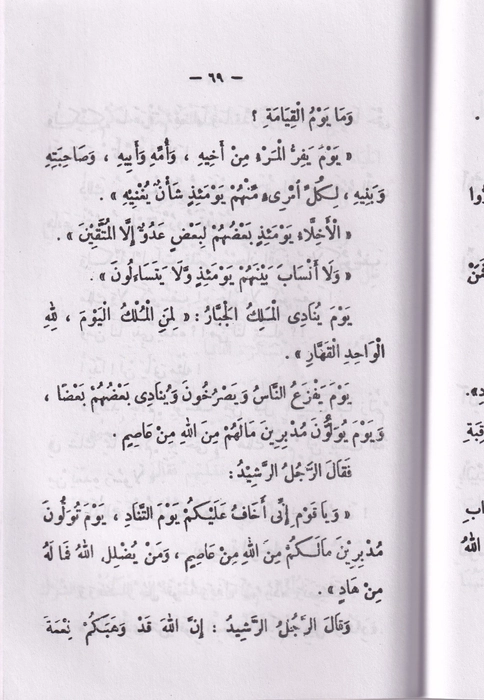 — ٦٩ —
وَمَا يَوْمُ الْقِيَامَةِ ؟
« يَوْمَ يَفِرُّ الْمَرْءُ مِنْ أَخِيهِ ، وَأُمِّهِ وَأَبِيهِ ، وَصَاحِبَتِهِ
وَبَنِيهِ ، لِكُلِّ امْرِىءٍ مِّنْهُمْ يَوْمَئِذٍ شَأْنٌ يُغْنِيهِ » .
« الْأَخِلَّاءُ يَوْمَئِذٍ بَعْضُهُمْ لِبَعْضٍ عَدُوٌّ إِلَّا الْمُتَّقِينَ » .
« وَلَا أَنْسَابَ بَيْنَهُمْ يَوْمَئِذٍ وَّلَا يَتَسَاءَلُونَ » .
يَوْمَ يُنَادِى الْمَلِكُ الْجَبَّارُ : « لِمَنِ الْمُلْكُ الْيَوْمَ ، لِلهِ
الْوَاحِدِ الْقَهَّارِ » .
يَوْمَ يَفْزَعُ النَّاسُ وَيَصْرُخُونَ وَيُنَادِى بَعْضُهُمْ بَعْضًا ،
وَيَوْمَ يُوَلُّونَ مُدْبِرِينَ مَالَهُمْ مِنَ اللهِ مِنْ عَاصِمٍ .
فَقَالَ الرَّجُلُ الرَّشِيْدُ :
« وَيَا قَوْمِ إِنِّى أَخَافُ عَلَيْكُمْ يَوْمَ التَّنَادِ ، يَوْمَ تُوَلُّونَ
مُدْبِرِيْنَ مَالَكُمْ مِنَ اللهِ مِنْ عَاصِمٍ ، وَمَنْ يُضْلِلِ اللهُ فَمَا لَهُ
مِنْ هَادٍ » .
وَقَالَ الرَّجُلُ الرَّشِيْدُ : إِنَّ اللهَ قَدْ وَهَبَكُمْ نِعْمَةً